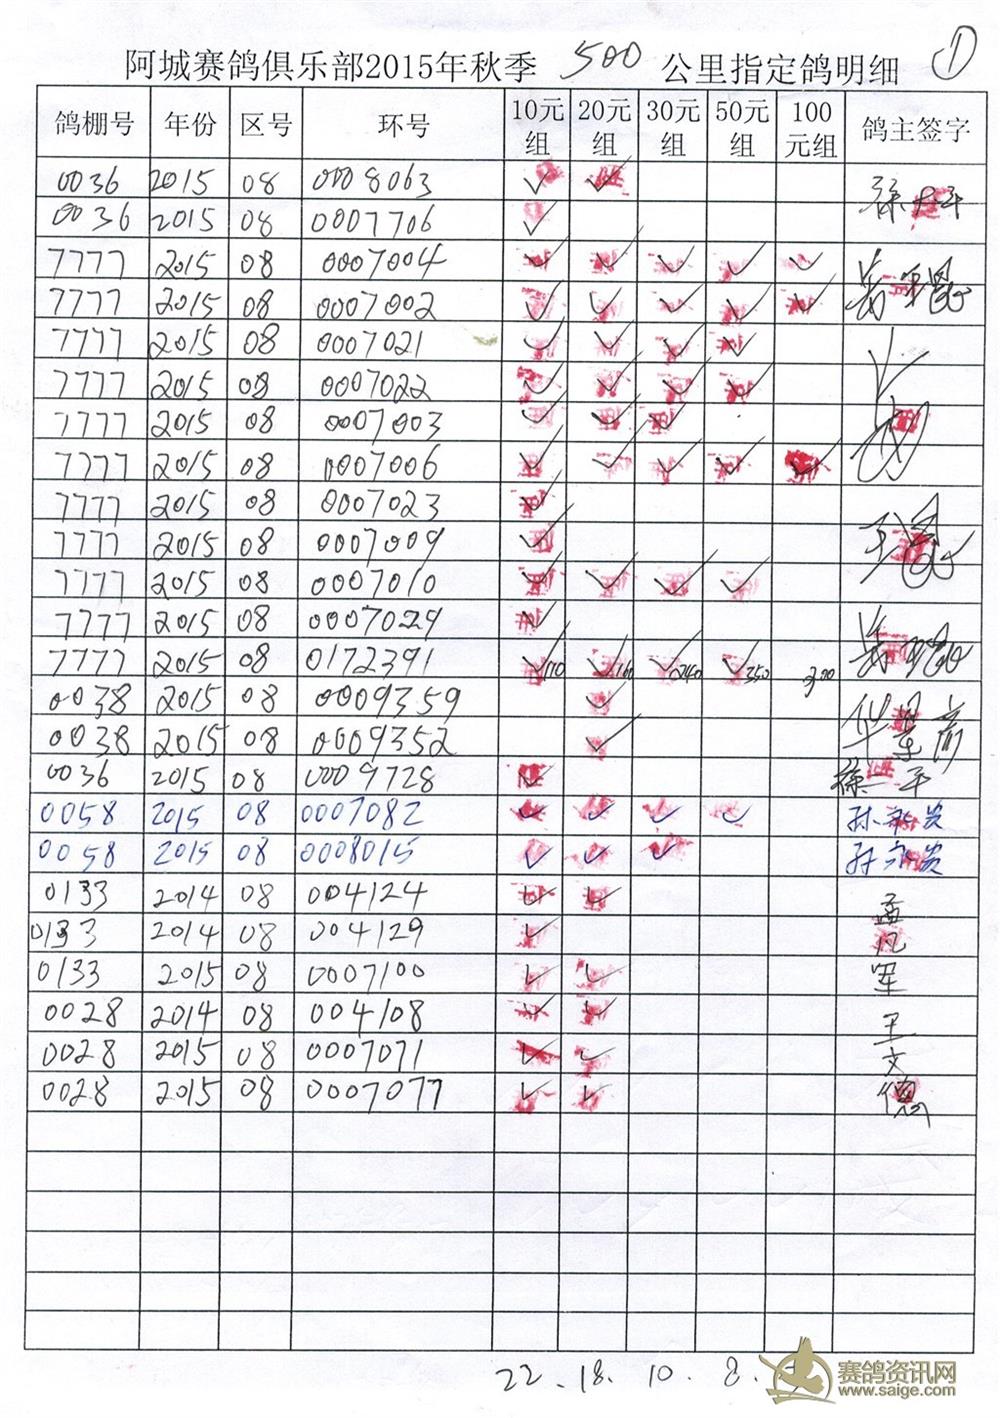 ①
阿城赛鸽俱乐部2015年秋季 500 公里指定鸽明细
鸽棚号 年份 区号 环号 10元组 20元组 30元组 50元组 100元组 鸽主签字
0036 2015 08 0008063 ✓ ✓
0036 2015 08 0007706 ✓
7777 2015 08 0007004 ✓ ✓ ✓ ✓ ✓
7777 2015 08 0007002 ✓ ✓ ✓ ✓ ✓
7777 2015 08 0007021 ✓ ✓ ✓ ✓
7777 2015 08 0007022 ✓ ✓ ✓ ✓
7777 2015 08 0007003 ✓ ✓ ✓
7777 2015 08 0007006 ✓ ✓ ✓ ✓ ✓
7777 2015 08 0007023 ✓
7777 2015 08 0007009 ✓
7777 2015 08 0007010 ✓ ✓ ✓ ✓
7777 2015 08 0007029 ✓
7777 2015 08 0172391 ✓110 ✓160 ✓240 ✓350 300
0038 2015 08 0009359 ✓
0038 2015 08 0009352 ✓
0036 2015 08 0009728 ✓
0058 2015 08 0007082 ✓ ✓ ✓ ✓ 孙永发
0058 2015 08 0008015 ✓ ✓ ✓ 孙永发
0133 2014 08 004124 ✓ ✓ 孟
0133 2014 08 004129 ✓ 凡
0133 2015 08 0007100 ✓ ✓ 军
0028 2014 08 004108 ✓ ✓ 王
0028 2015 08 0007071 ✓ ✓ 文
0028 2015 08 0007077 ✓ ✓ 德
22 . 18 . 10 . 8 .
赛鸽资讯网
www.saige.com